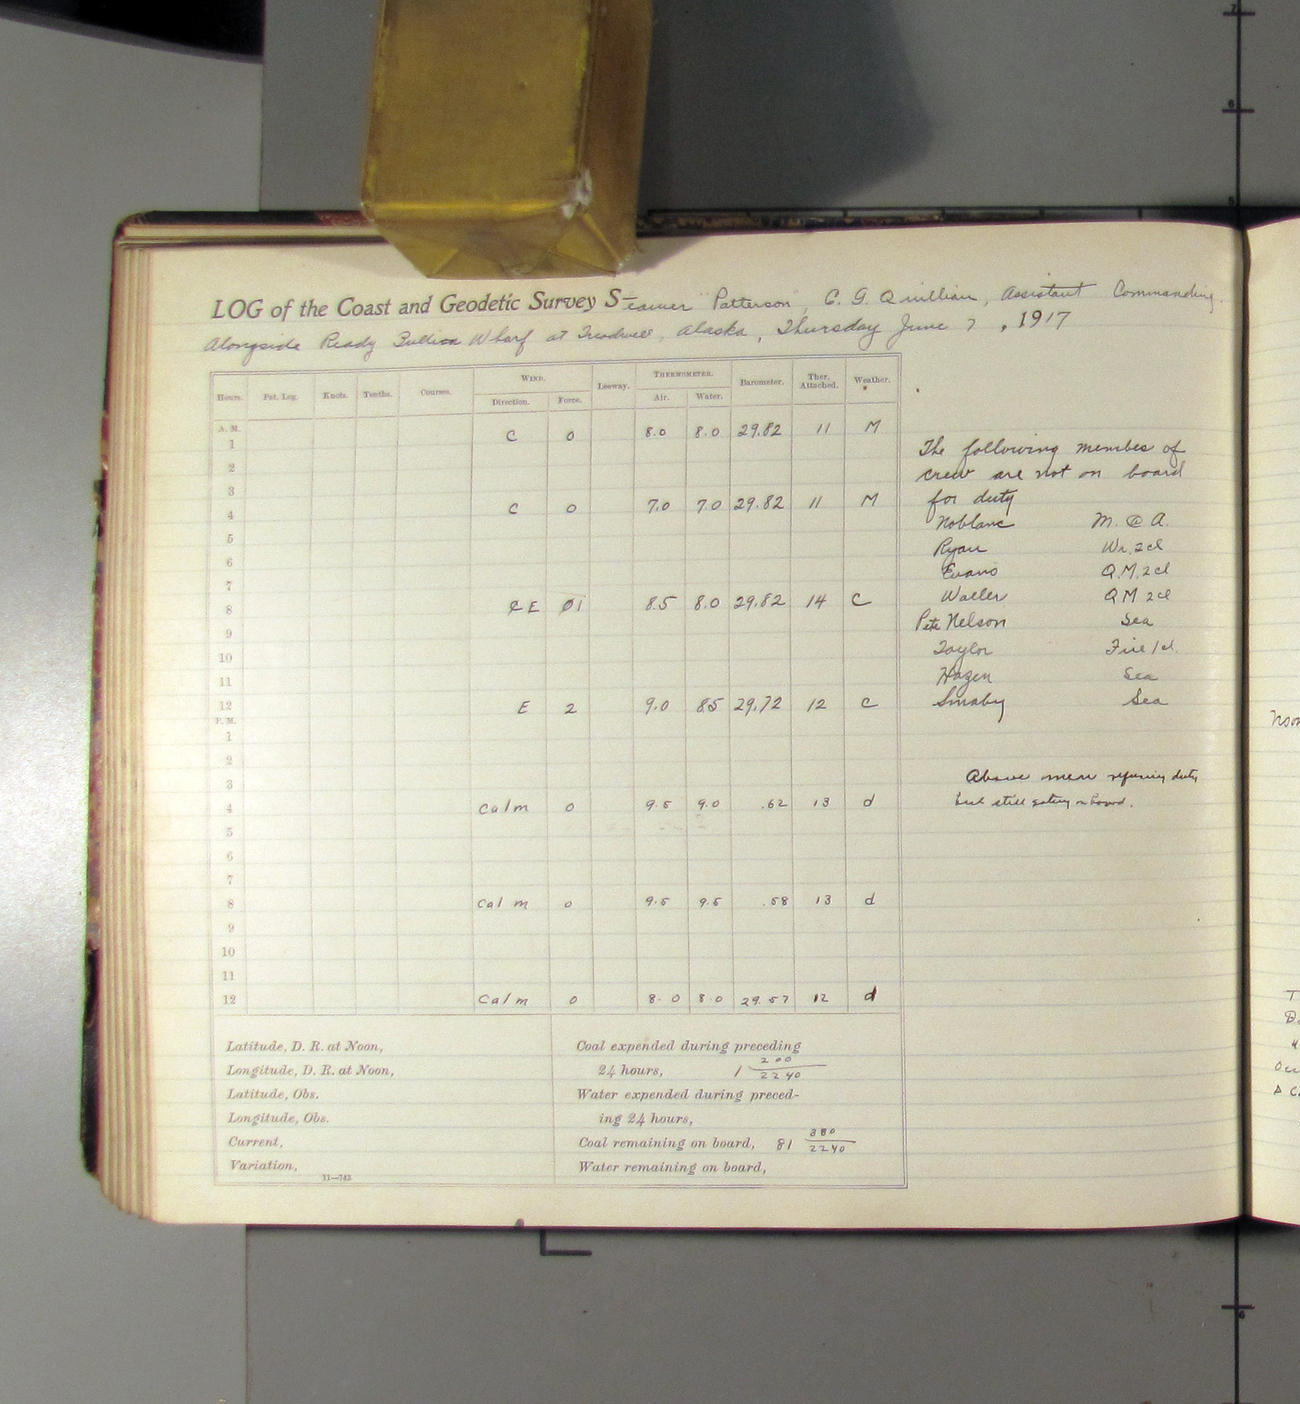 LOG of the Coast and Geodetic Survey Steamer Patterson, C. G. Quillian, Assistant Commanding.
Alongside Ready Bullion Wharf at Treadwell, Alaska, Thursday June 7, 1917
Hours. Pat. Log. Knots. Tenths. Courses. WIND. Direction. Force. Leeway. THERMOMETER. Air. Water. Barometer. Ther. Attached. Weather.
A. M.
1 C 0 8.0 8.0 29.82 11 M
2
3
4 C 0 7.0 7.0 29.82 11 M
5
6
7
8 E 1 8.5 8.0 29.82 14 C
9
10
11
12 E 2 9.0 85 29.72 12 C
P. M.
1
2
3
4 Calm 0 9.5 9.0 .62 13 d
5
6
7
8 Calm 0 9.5 9.5 .58 13 d
9
10
11
12 Calm 0 8.0 8.0 29.57 12 d
Latitude, D. R. at Noon,
Longitude, D. R. at Noon,
Latitude, Obs.
Longitude, Obs.
Current,
Variation,
11—743
Coal expended during preceding
24 hours, 1 200/2240
Water expended during preced-
ing 24 hours,
Coal remaining on board, 81 380/2240
Water remaining on board,
The following membes of
crew are not on board
for duty
Noblanc M. @ A.
Ryan Wr. 2cl
Evans Q.M. 2cl
Waller QM 2cl
Pete Nelson Sea
Taylor Fire 1cl.
Hagen Sea
Smaby Sea
Above men refusing duty
but still eating on board.